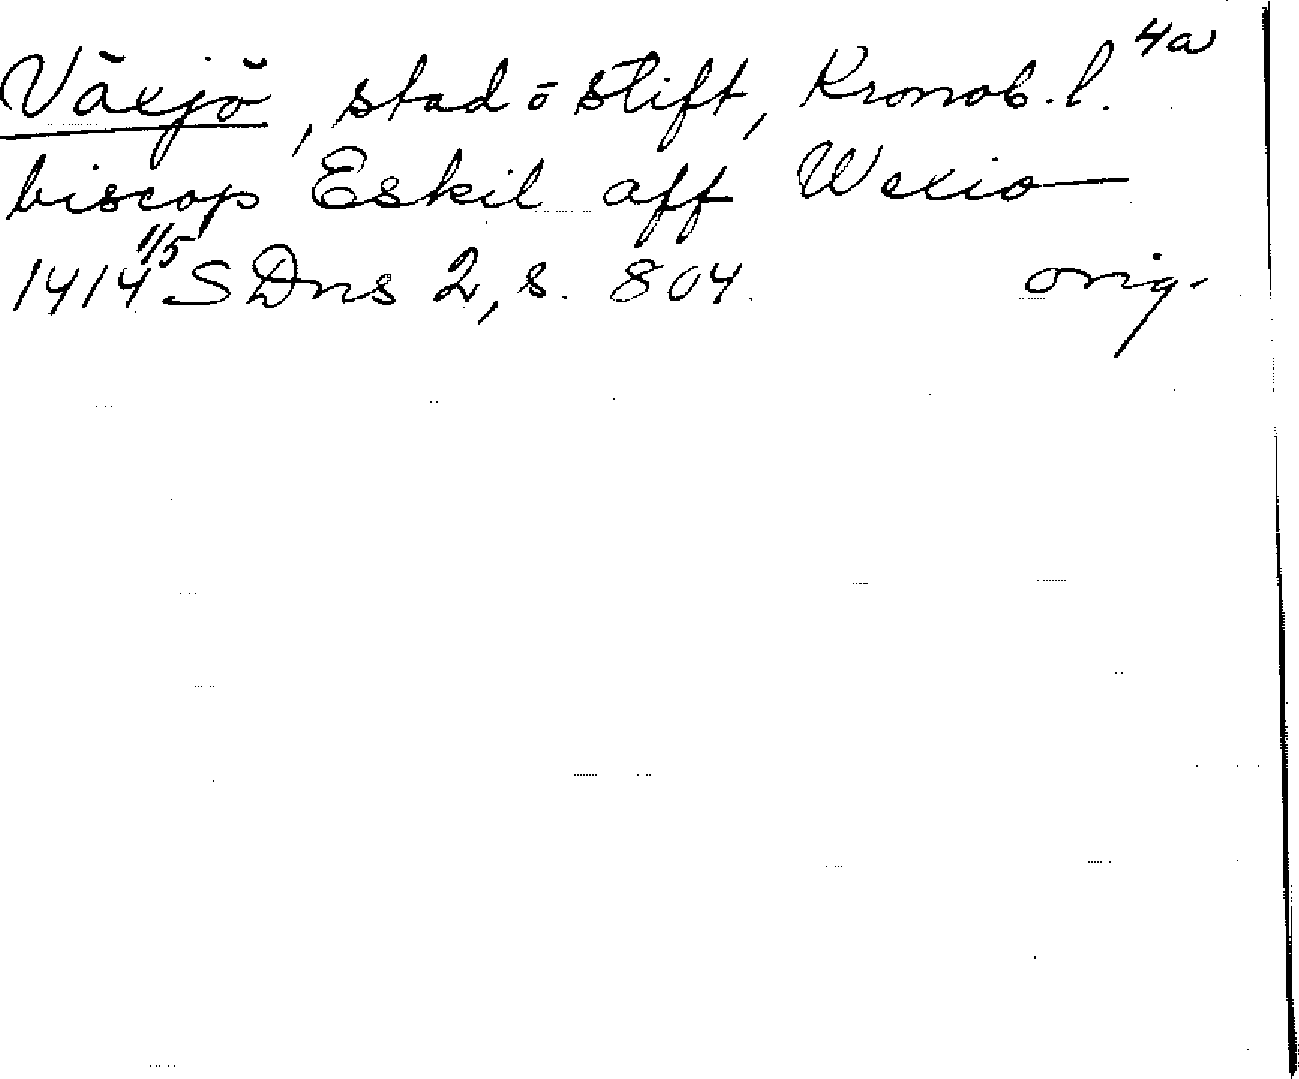 4a
Växjö, stad o stift, Kronob. l.
biscop Eskil aff Wexio
1414 1/5 SDns 2, s. 804. orig.